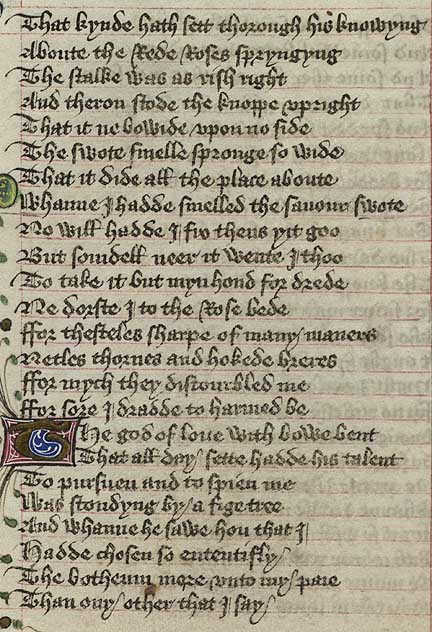 That kynde hath sett thorough his knowyng
Aboute the Rede Roses spryngyng
The stalke was as rish right
And theron stode the knoppe vpright
That it ne bowide vpon no side
The swote smelle spronge so wide
That it dide all the place aboute
Whanne I hadde smelled the sauour swote
No will hadde I fro thens yit goo
But somdell neer it wente I thoo
To take it but myn hond for drede
Ne dorste I to the Rose bede
ffor thesteles sharpe of many maners
Netles thornes and hokede breres
ffor mych they distourbled me
ffor sore I dradde to harmed be
The god of loue with bowe bent
That all day sette hadde his talent
To pursuen and to spien me
Was stondyng by a fige tree
And whanne he sawe hou that I
Hadde chosen so ententifly
The botheum more vnto my paie
Than ony other that I say